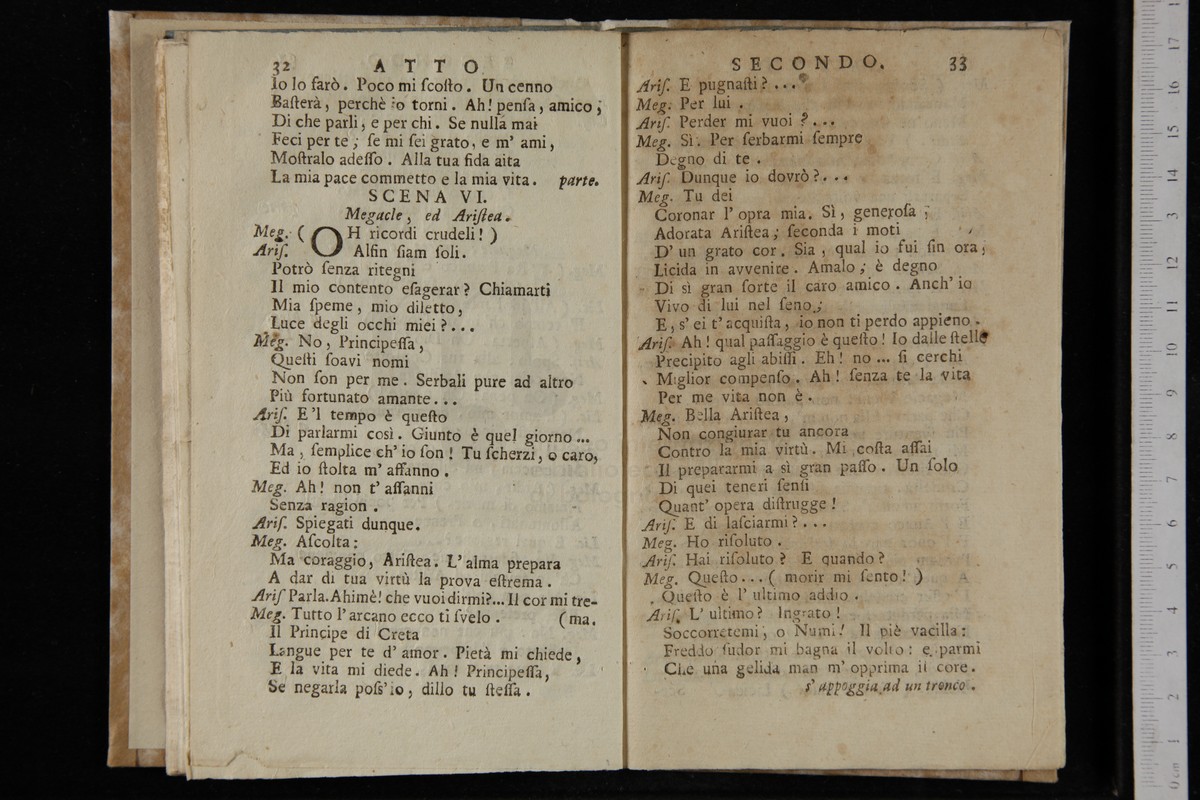 32 ATTO
Io lo farò. Poco mi ſcoſto. Un cenno
Baſterà, perchè io torni. Ah! penſa, amico,
Di che parli, e per chi. Se nulla mai
Feci per te; ſe mi ſei grato, e m' ami,
Moſtralo adeſſo. Alla tua fida aita
La mia pace commetto e la mia vita. parte.
SCENA VI.
Megacle, ed Ariſtea.
Meg. (OH ricordi crudeli!)
Ariſ. Alfin ſiam ſoli.
Potrò ſenza ritegni
Il mio contento eſagerar? Chiamarti
Mia ſpeme, mio diletto,
Luce degli occhi miei?...
Meg. No, Principeſſa,
Queſti ſoavi nomi
Non ſon per me. Serbali pure ad altro
Più fortunato amante...
Ariſ. E'l tempo è queſto
Di parlarmi così. Giunto è quel giorno...
Ma, ſemplice ch' io ſon! Tu ſcherzi, o caro,
Ed io ſtolta m' affanno.
Meg. Ah! non t' affanni
Senza ragion.
Ariſ. Spiegati dunque.
Meg. Aſcolta:
Ma coraggio, Ariſtea. L' alma prepara
A dar di tua virtù la prova eſtrema.
Ariſ Parla. Ahimè! che vuoi dirmi?... Il cor mi tre-
Meg. Tutto l' arcano ecco ti ſvelo. (ma.
Il Principe di Creta
Langue per te d' amor. Pietà mi chiede,
E la vita mi diede. Ah! Principeſſa,
Se negarla poſs' io, dillo tu ſteſſa.
SECONDO. 33
Ariſ. E pugnaſti?...
Meg. Per lui.
Ariſ. Perder mi vuoi?...
Meg. Sì. Per ſerbarmi ſempre
Degno di te.
Ariſ. Dunque io dovrò?...
Meg. Tu dei
Coronar l' opra mia. Sì, generoſa,
Adorata Ariſtea; ſeconda i moti
D' un grato cor. Sia, qual io fui fin ora,
Licida in avvenire. Amalo; è degno
Di sì gran ſorte il caro amico. Anch' io
Vivo di lui nel ſeno;
E, s' ei t' acquiſta, io non ti perdo appieno.
Ariſ. Ah! qual paſſaggio è queſto! Io dalle ſtelle
Precipito agli abiſſi. Eh! no... ſi cerchi
Miglior compenſo. Ah! ſenza te la vita
Per me vita non è.
Meg. Bella Ariſtea,
Non congiurar tu ancora
Contro la mia virtù. Mi coſta aſſai
Il prepararmi a sì gran paſſo. Un ſolo
Di quei teneri ſenſi
Quant' opera diſtrugge!
Ariſ. E di laſciarmi?...
Meg. Ho riſoluto.
Ariſ. Hai riſoluto? E quando?
Meg. Queſto... (morir mi ſento!)
Queſto è l' ultimo addio.
Ariſ. L' ultimo? Ingrato!
Soccorretemi, o Numi! Il piè vacilla:
Freddo ſudor mi bagna il volto: e parmi
Che una gelida man m' opprima il core.
s' appoggia ad un tronco.
0 cm 1 2 3 4 5 6 7 8 9 10 11 12 13 14 15 16 17